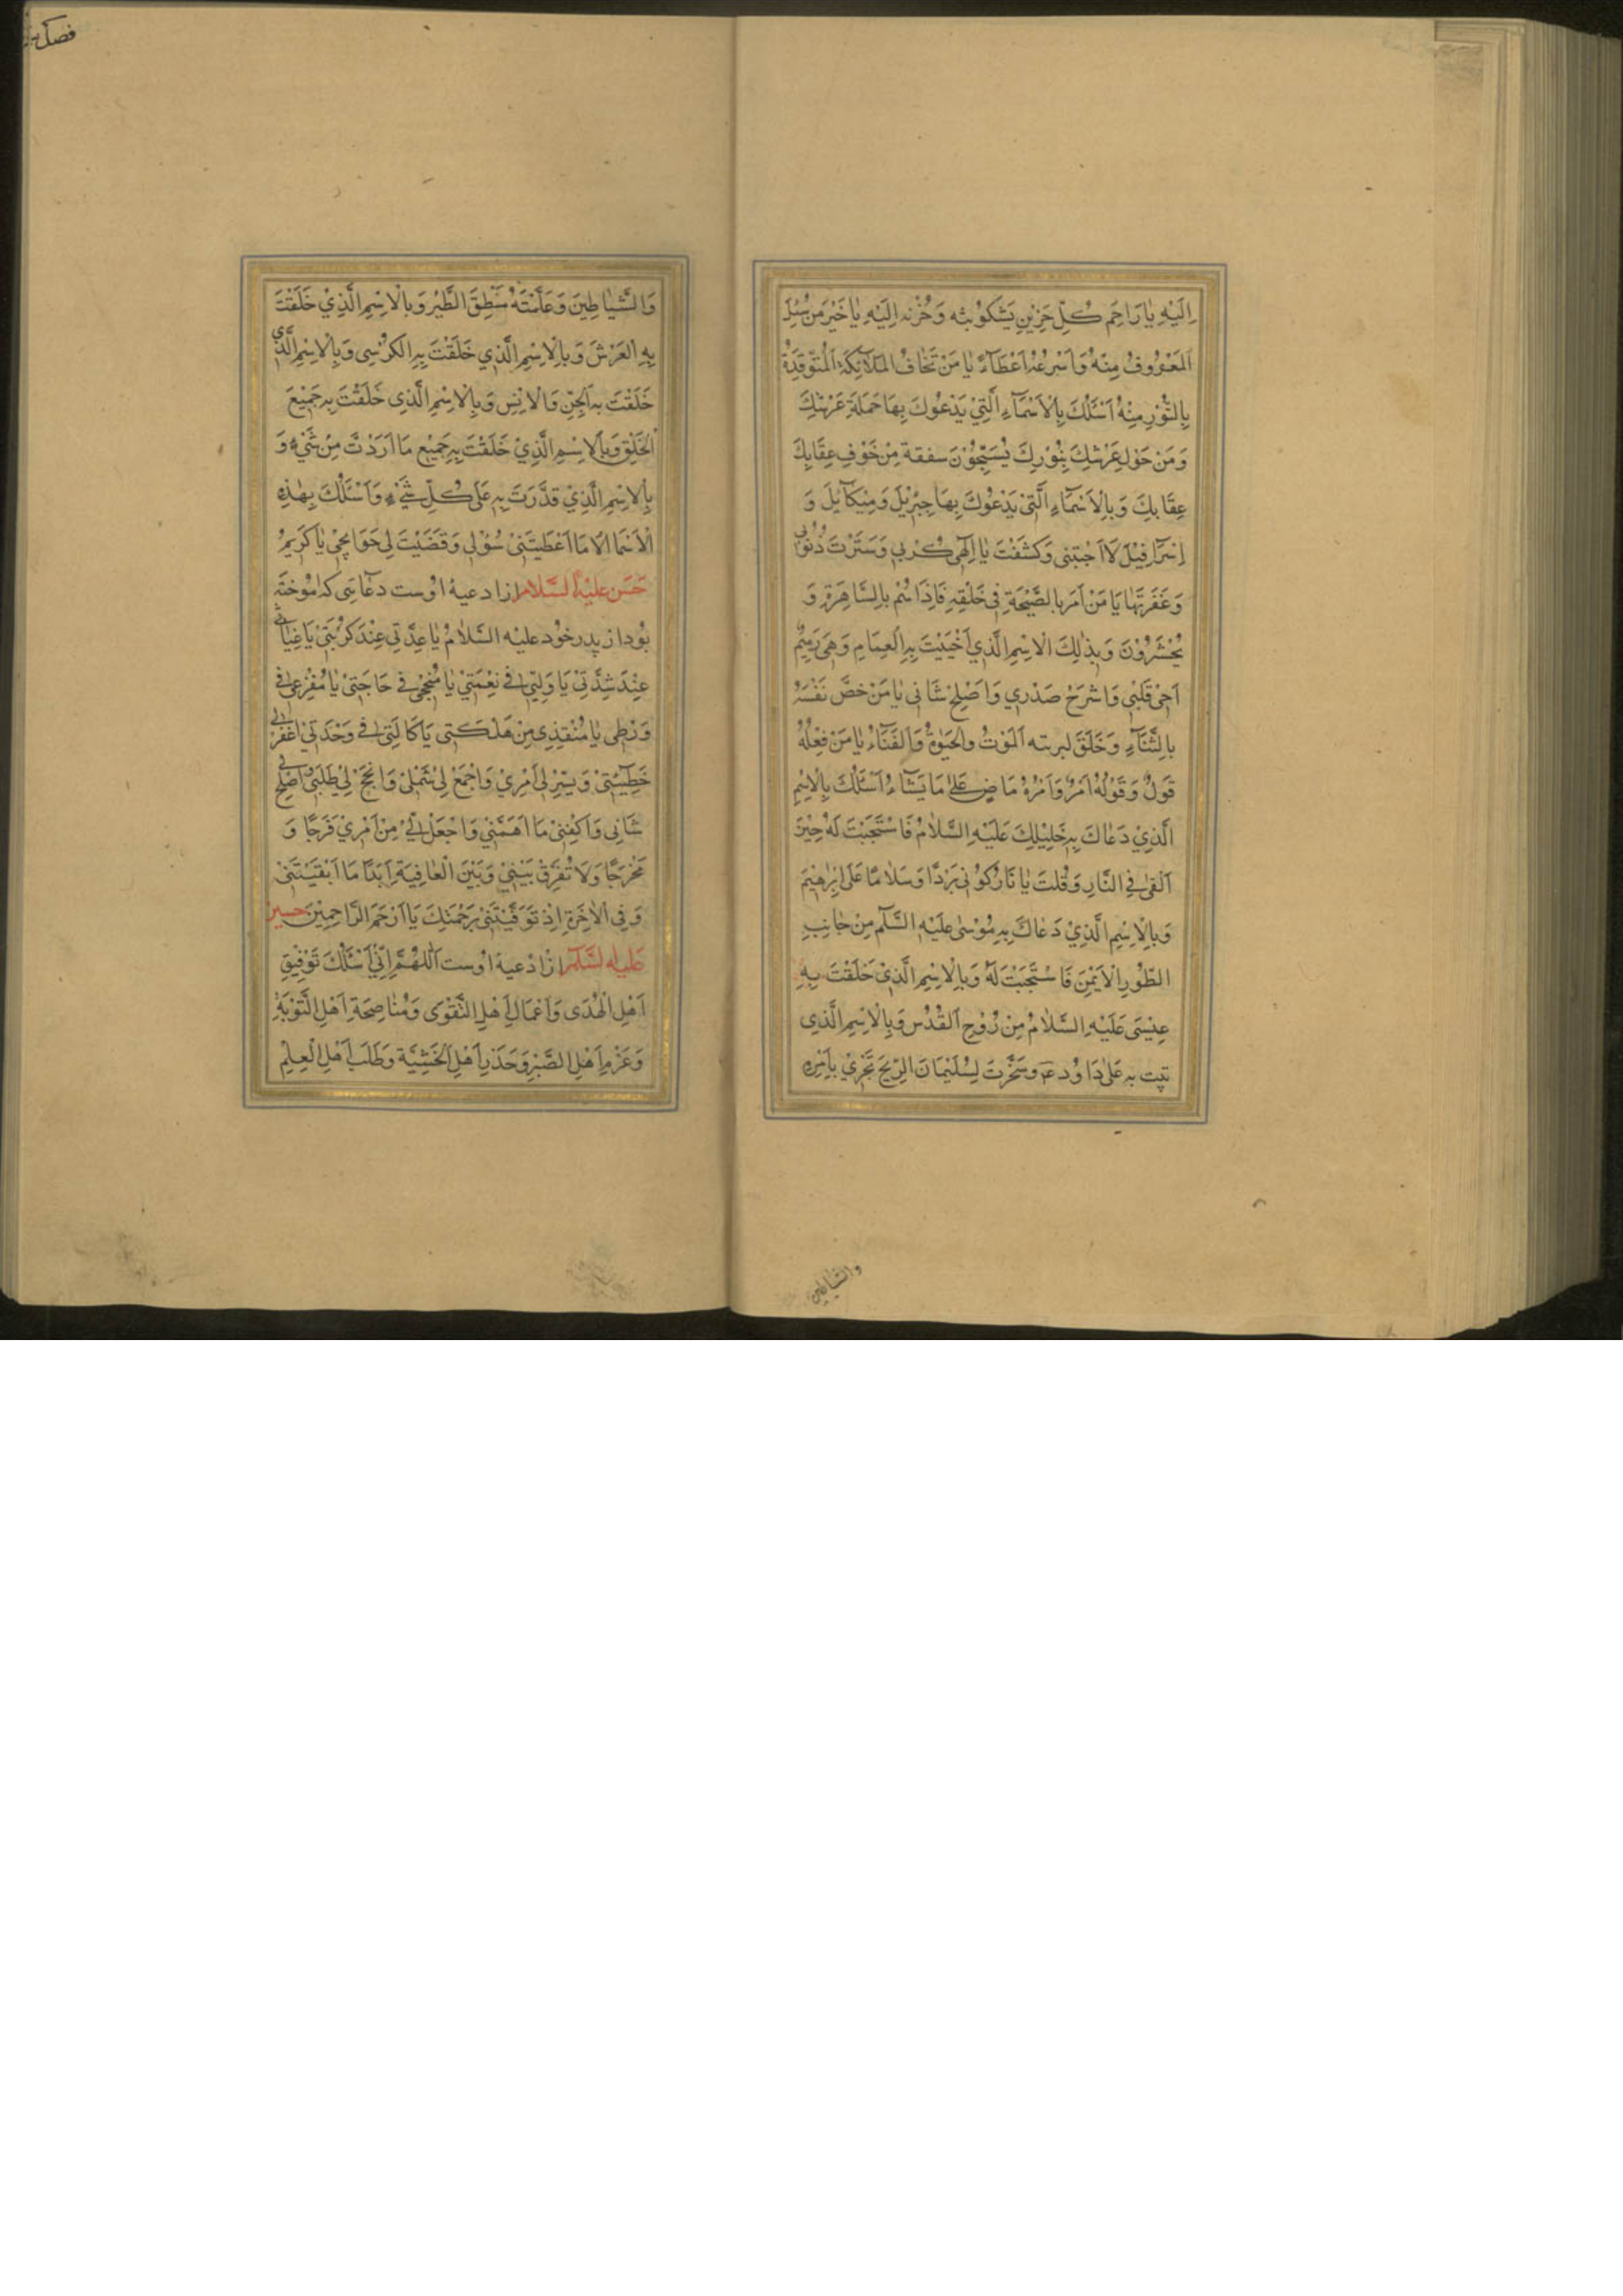 اِلَيْهِ يٰا رَاحِمَ كُلِّ حَزِيْنٍ يَشْكُوْ بثه وَ حُزْنه اِلَيْهِ يٰا خَيْرَ مَنْ سُئِلَ
اَلمَعْرُوفُ مِنْهُ وَ اَسْرَعُهُ اعْطَآءً يٰا مَنْ تَخٰافُ المَلآئِكَةُ اَلْمُتَوَقِّدَةُ
بِالنُّوْرِ مِنْهُ اَسْئَلُكَ بِالْاَسْمَآءِ الَّتِيْ يَدْعُوكَ بِهَا حَمَلَةُ عَرْشِكَ
وَ مَن حَوْلِ عَرْشِكَ بِنُوْرِكَ يُسَبِّحُوْنَ سفقة مِنْ خَوْفِ عِقَابِكَ
عِقَابِكَ وَ بِالْاَسْمَآءِ الَّتِىْ يَدْعُوكَ بِهَا جِبْرِئيْلُ وَ مِيْكَآئِيلَ وَ
اِسْرَافِيْلَ لَا اَجَبْتَنِى وَ كَشَفْتَ يٰا اِلٰهِى كُرْبِى وَ سَتَرْتَ ذُنُوْبِى
وَ غَفَرْتَهٰا يٰا مَنْ اَمَرَ بِا لصَّيْحَةِ فِى خَلْقِهِ فَاِذَا هُمْ بِالسَّاهِرَةِ وَ
يُحْشَرُوْنَ وَ بِذٰلِكَ الْاِسْمِ الَّذِي اَحْيَيْتَ بِهِ الْعِظَامِ وَ هِىَ رَمِيْمٌ
اَحْىِ قَلْبِى وَ اشْرَحْ صَدْرِي وَ اَصْلِحْ شَانِى يٰا مَنْ خصَّ نَفْسَهُ
بِالبَقَآءِ وَ خَلَقَ لبريته اَلمَوْتُ وَ الْحَيٰوةُ وَ اَلفَنَآءُ يٰا مَنْ فِعْلُهُ
قَولٌ وَ قَوْلُهُ اَمْرٌ وَ اَمْرُهُ مَا ضٍ عَلىٰ مَا يَشَآءُ اَسْئَلُكَ بِالْاِسْمِ
الَّذِيْ دَعٰاكَ بِهِ خَلِيْلِكَ عَلَيْهِ السَّلٰامُ فَاسْتَجَبْتَ لَهُ حِيْنَ
اَلقٰى فِى النَّارِ وَ قُلتَ يٰا نَارُ كُوْنِى بَرْدًا وَ سَلٰامًا عَلٰى اِبْرٰهِيْمَ
وَ بِالْاِسْمِ الَّذِيْ دَعٰاكَ بِهِ مُوْسٰى عَلَيْهِ السَّلٰم مِنْ جٰانِبِ
الطُّوْرِ الْاَيْمَنِ فَاسْتَجَبْتَ لَهُ وَ بِالْاِسْمِ الَّذِىْ خَلَقْتَ بِهِ
عِيْسَى عَلَيْهِ السَّلٰامُ مِنْ رُوْحِ اَلقُدُسِ وَ بِالْاِسْمِ الَّذِى
تبت به عَلىٰ دَاوُد ع وَ سَخَّرْتَ لِسُلَيْمَانَ الرِّيْحَ تَجْرِيْ بِاَمْرِهِ
والشياطين
فصل
وَ الشَّيٰاطِينَ وَ عَلَّمْتَهُ مَنْطِقَ الطَّيْرِ وَ بِالْاِسْمِ الَّذِيْ خَلَقْتَ
بِهِ العَرْشَ وَ بِالْاِسْمِ الَّذِي خَلَقْتَ بِهِ الكُرْسِى وَ بِالْاِسْمِ الَّذِي
خَلَقْتَ بِهِ الْجِنِّ وَ الْاِنْسِ وَ بِالْاِسْمِ الَّذِى خَلَقْتَ بِهِ جَمِيْعَ
الْخَلْقِ وَ بِالْاِسْمِ الَّذِيْ خَلَقْتَ بِهِ جَمِيْعِ مَا اَرَدْتَ مِنْ شَيْءٍ وَ
بِالْاِسْمِ الَّذِيْ قدَّرْتَ بِهِ عَلَى كُلِّ شَيْءٍ وَ اَسْئَلُكَ بِهٰذِهِ
الْاَسْمَا الَّا مَا اَعْطَيْتَنِىْ سُوْلِى وَ قَضَيْتَ لِى حَوَائِجِىْ يٰا كَرِيْمُ
حَسَن عَلَيْهِ السَّلام از ادعیهٔ اوست دعائی که آموخته
بُود از پدر خُود علیه السَّلامُ يٰا عِدَّتِى عِنْدَ كُرْبَتِىْ يٰا غِيٰاثِى
عِنْدَ شِدَّتِىْ يٰا وَلِيّى فِى نِعْمَتِىْ يٰا مُنْجِحِى فِى حَاجَتِىْ يٰا مُفْزِعِى فِى
وَرْطَتِى يٰا مُنْقِذِى مِنْ هَلَكَتِى يٰا كَالِئِى فِى وَحْدَتِىْ اغْفِرْ لِى
خَطِيْئَتِىْ وَ يَسِّرْ لِى اَمْرِيْ وَ اجْمَعْ لِى شَمْلِىْ وَ انْجَحْ لِىْ طَلَبَتِىْ وَ اَصْلِحْ لِى
شَانِى وَ اَكْفِنِىْ مَا اَهَمَّنِيْ وَ اجْعَلْ لِىْ مِنْ اَمْرِيْ فَرَجًا وَ
مَخْرَجًا وَ لَا تُفَرِّقْ بَيْنِيْ وَ بَيْنَ الْعٰافِيَةِ اَبَدًا مَا اَبْقَيْتَنِىْ
وَ فِى الْاٰخِرَةِ اِذْ تَوَفَّيْتَنِىْ بِرَحْمَتِكَ يٰا اَرْحَمَ الرَّاحِمِيْنَ حسین
علیه السَّلٰم از ادعیهٔ اوست اَللّٰهُمَّ اِنِّى اَسْئَلُكَ تَوْفِيْقِ
اَهْلِ الْهُدَى وَ اَعْمَالِ اَهْلِ التَّقْوَى وَ مُنٰاصِحَةِ اَهْلِ التَّوْبَةِ
وَ عَزْمِ اَهْلِ الصَّبْرِ وَ حَذَرِ اَهْلِ الْخَشْيَة وَ طَلَبَ اَهْلِ الْعِلْمِ